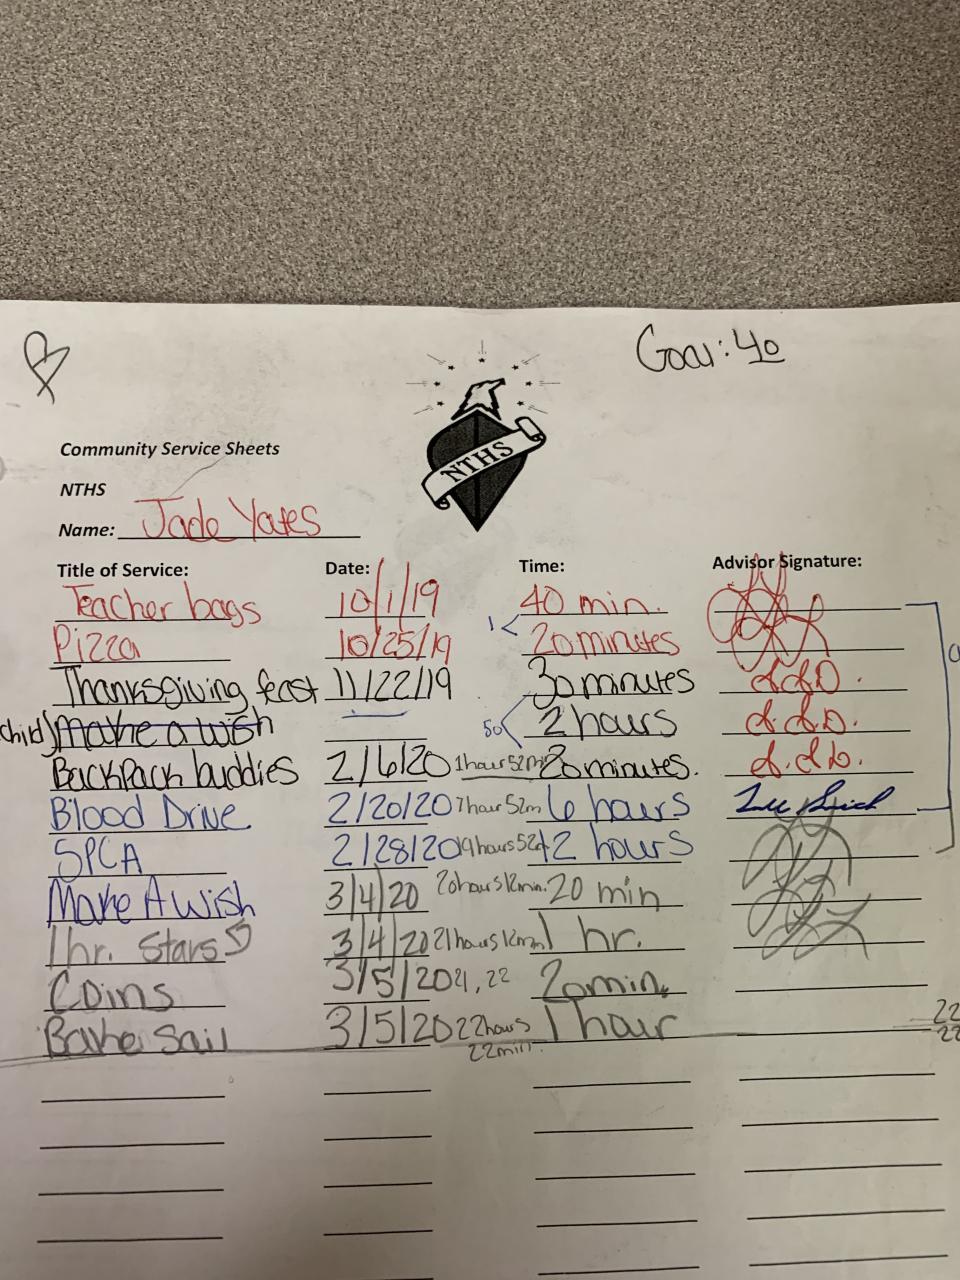 Goal: 40
NTHS
Community Service Sheets
NTHS
Name: Jade Yates
Title of Service: Date: Time: Advisor Signature:
Teacher bags 10/1/19 40 min.
Pizza 10/25/19 1 < 20 minutes
Thanksgiving feast 11/22/19 30 minutes d.d.D.
child) Make a wish 50 < 2 hours d.d.D.
BackPack buddies 2/6/20 1 hour 52m 20 minutes. d.d.D.
Blood Drive 2/20/20 7 hour 52m 6 hours
SPCA 2/28/20 19 hours 52m 12 hours
Make A Wish 3/4/20 20 hours 12 min. 20 min
1 hr. Stars 3/4/20 21 hours 12 min 1 hr.
Coins 3/5/20 21,22 20 min.
Bake Sail 3/5/20 22 hours 1 hour 22
22 min. 22